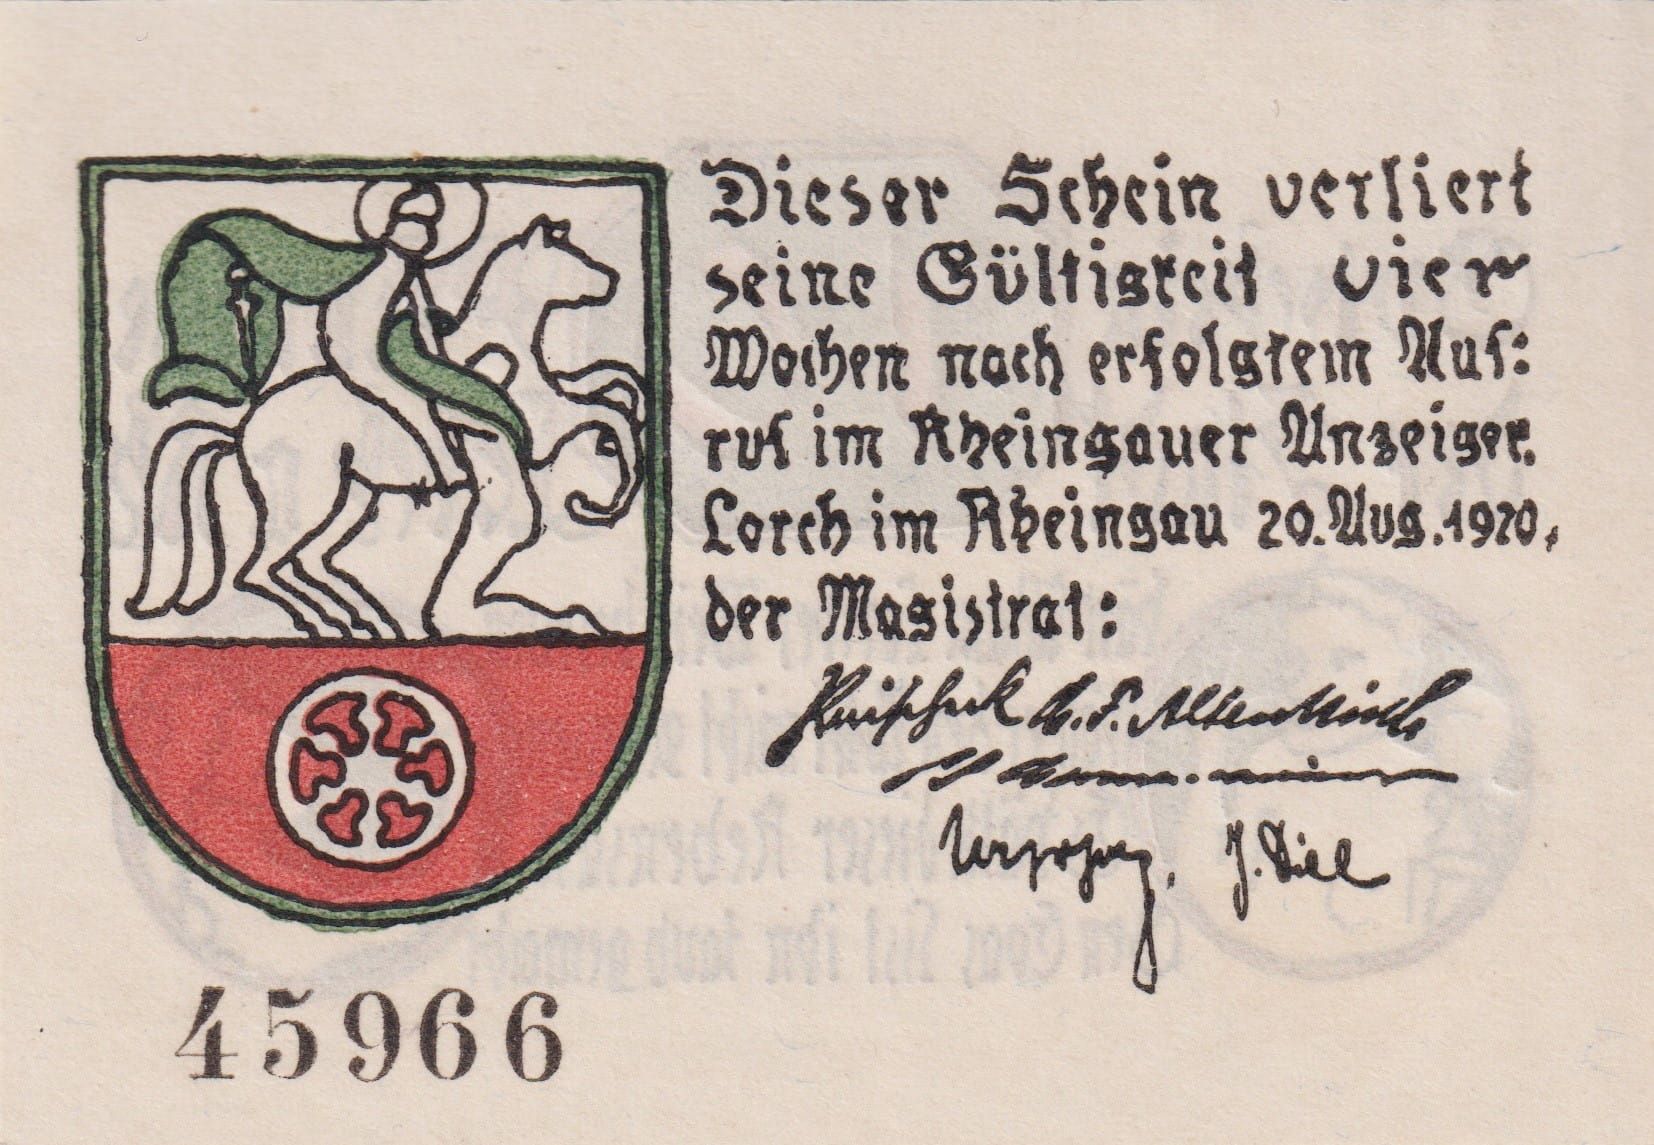 Dieser Schein verliert
seine Gültigkeit vier
Wochen nach erfolgtem Auf:
ruf im Rheingauer Anzeiger.
Lorch im Rheingau 20. Aug. 1920,
der Magistrat:
J. Diel
45966